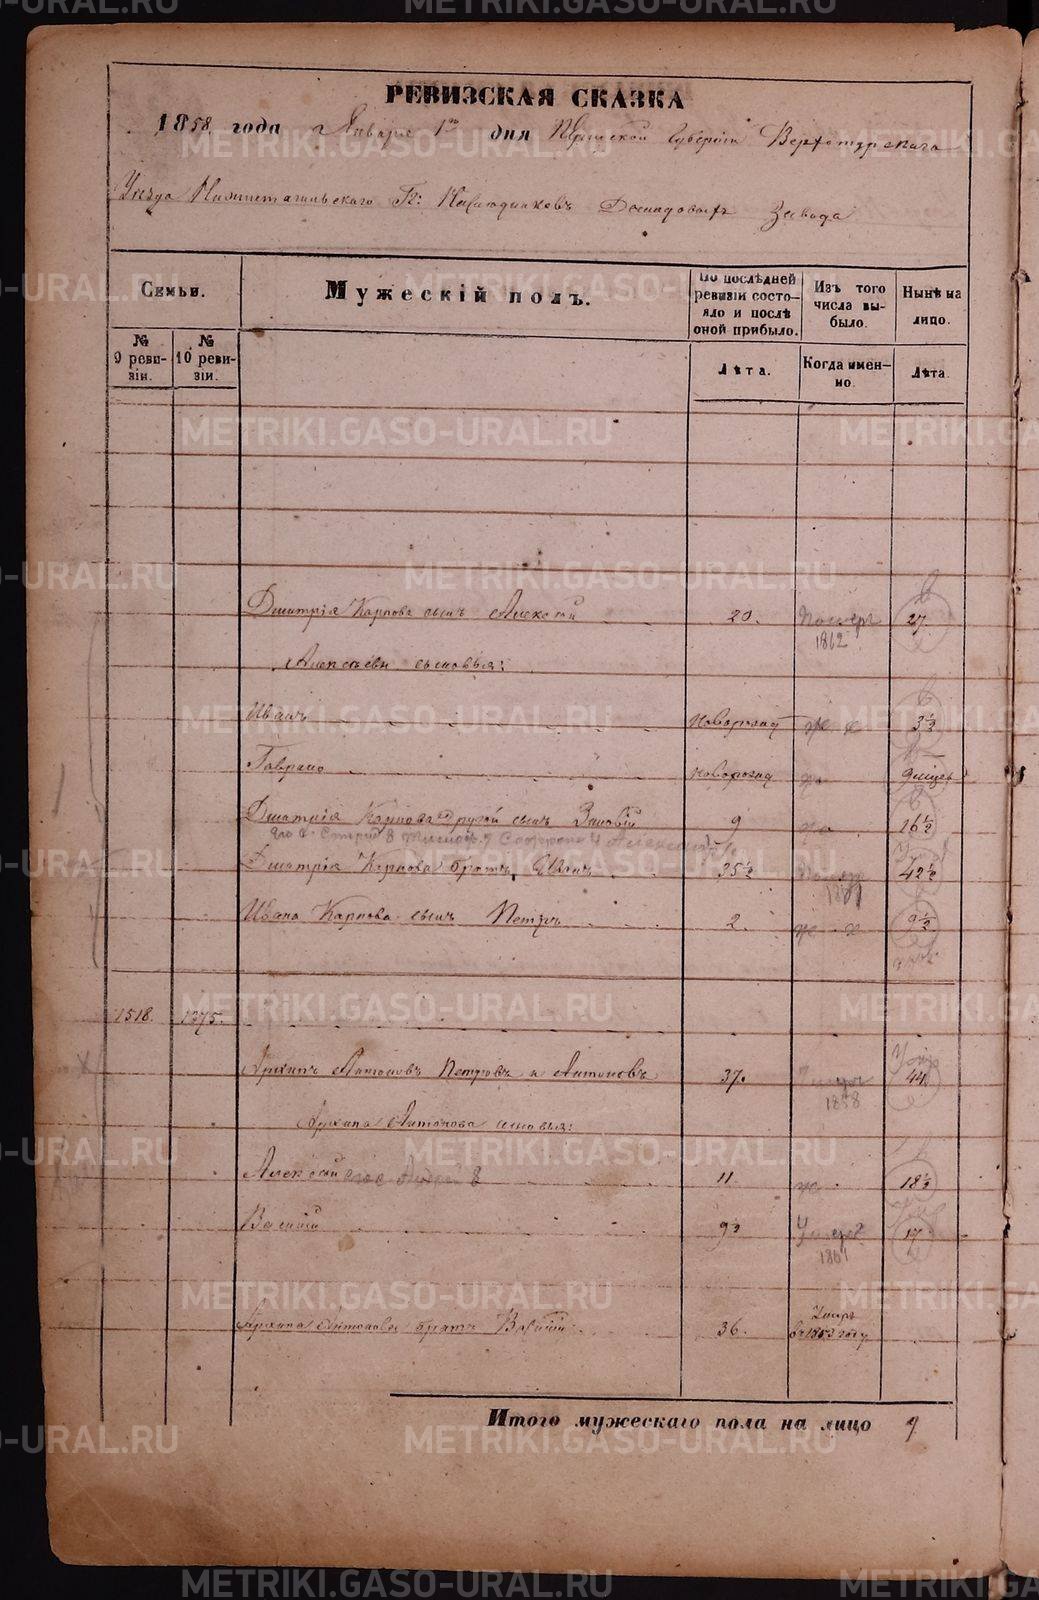 РЕВИЗСКАЯ СКАЗКА
1858. года Января 1го дня Пермской Губерніи Верхотурскаго
Уѣзда Нижнетагильскаго Гг: Наслѣдниковъ Демидовыхъ Завода
Семьи.
Мужескій полъ.
По послѣдней ревизіи состояло и послѣ оной прибыло.
Изъ того числа выбыло.
Нынѣ на лицо.
№ 9 ревизіи.
№ 10 ревизіи.
Лѣта.
Когда именно.
Лѣта.
Дмитрія Карпова сынъ Алексѣй 20. 1862 27
Алексѣевы сыновья:
Иванъ новорожд 3½
Гаврило новорожд 9 мѣсец
Дмитрія Карпова другой сынъ Зиновій 9 16½
Дмитрія Карпова братъ Иванъ 35½ 42½
Ивана Карпова сынъ Петръ 2. 9½
1518. 1375.
Архипъ Антоновъ Петровъ и Антоновъ 37. 1858 44
Архипа Антонова сыновья:
Алексѣй 11 18½
Василій 9½ 1861 17
Архипа Антонова братъ Василій 36. Умеръ въ 1853 году
Итого мужескаго пола на лицо 9
METRIKI.GASO-URAL.RU